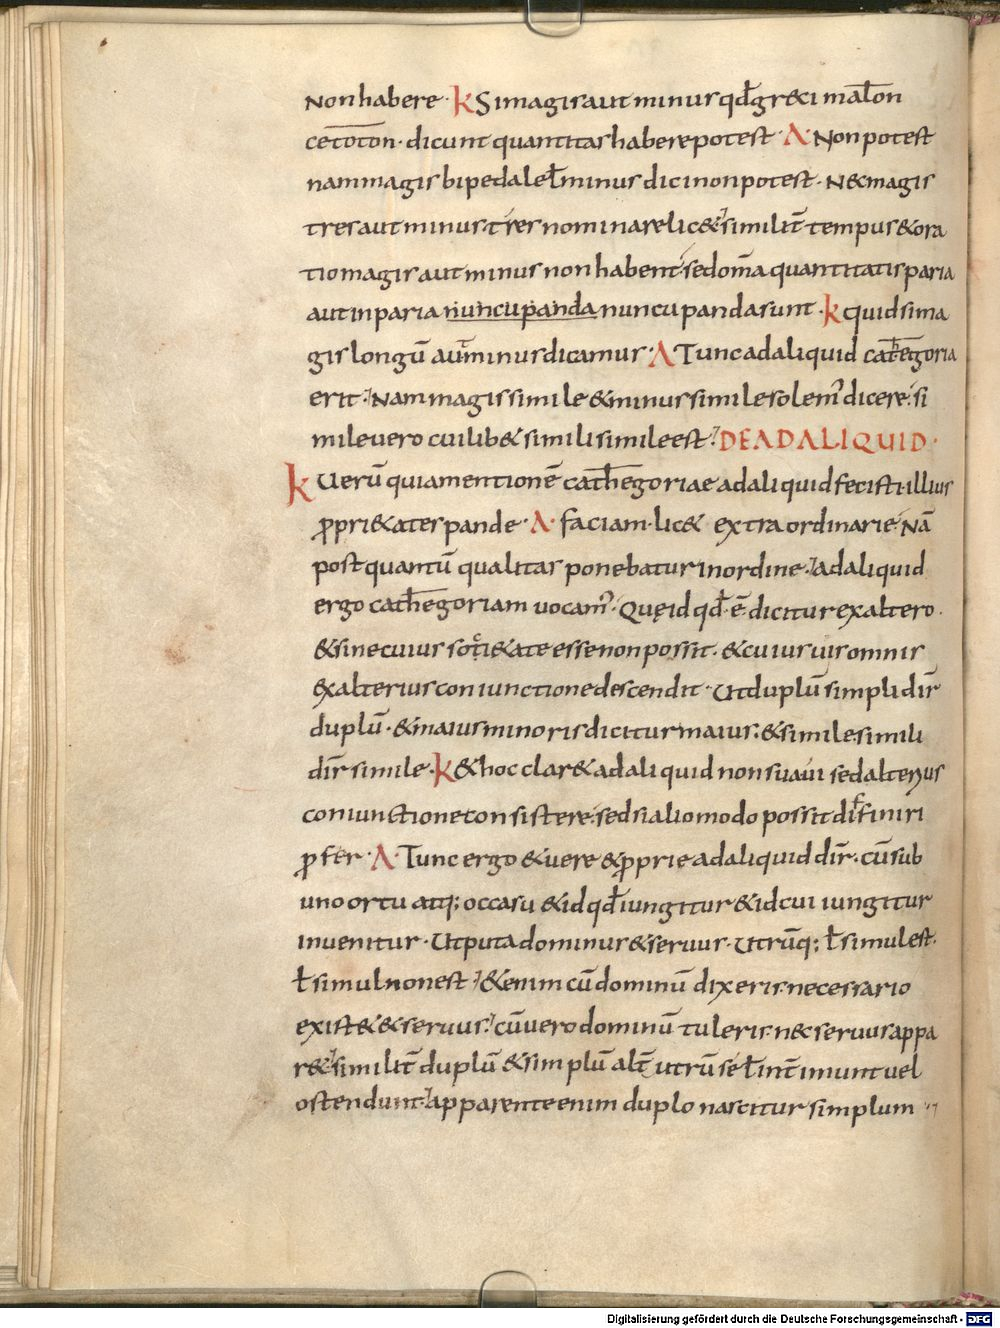 Non habere · k Si magis aut minus qđ gr&ci mal̄on
cetōton · dicunt quantitas habere potest · Λ · Non potest
nam magis bipedale ł minus dici non potest · N& magis
tres aut minus tres nominare lic& similit̄ tempus & ora
tio magis aut minus non habent sed om̄a quantitatis paria
aut inparia nuncupanda nuncupanda sunt · k quid si ma
gis longū aut minus dicamus · Λ Tunc ad aliquid cathegoria
erit · Nam magis simile & minus simile solem' dicere · si
mile vero cuilib& simili simile est · DE AD ALIQUID ·
k Uerū quia mentionē cathegoriae ad aliquid fecisti illius
p̄pri&ates pande · Λ · faciam · lic& extra ordinarie Nā
post quantū qualitas ponebatur in ordine · ad aliquid
ergo cathegoriam uocam' · Quęid qđ · ē · dicitur ex altero ·
& sine cuius soci&ate esse non possit · & cuius uis omnis
ex alterius coniunctione descendit · Ut duplū simpli dir̄
duplū · & maius minoris dicitur maius · & simile simili
dir̄ simile · k & hoc clar& ad aliquid non sua ui sed alterius
coniunctione consistere · sed si alio modo possit diffiniri
p̄fer · Λ · Tunc ergo & vere & p̄prie ad aliquid dir̄ · cū sub
uno ortu atq; occasu & id qđ iungitur & id cui iungitur
invenitur · Ut puta dominus & servus · Utrūq; ł simul est ·
ł simul non est · &enim cū dominū dixeris · necessario
exist& & servus · cū vero dominū tuleris · n& servus appa
r& similit̄ duplū & simplū alt̄utrū se ł intimunt vel
ostendunt apparente enim duplo nascitur simplum
Digitalisierung gefördert durch die Deutsche Forschungsgemeinschaft - DFG